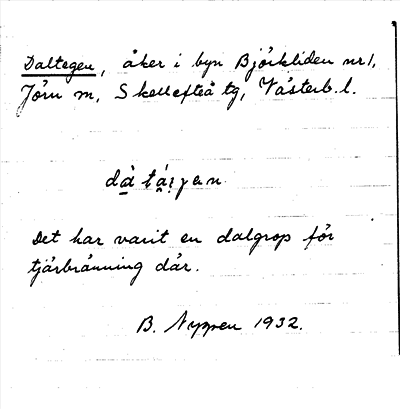 Daltegen, åker i byn Björkliden nr 1,
Jörn sn, Skellefteå tg, Västerb. l.
Det har varit en dalgrop för
tjärbränning där.
B. Nygren 1932.